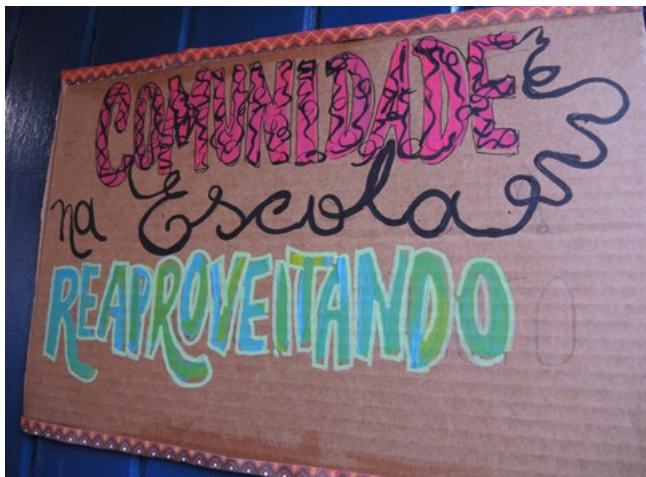 COMUNIDADE
na Escola
REAPROVEITANDO